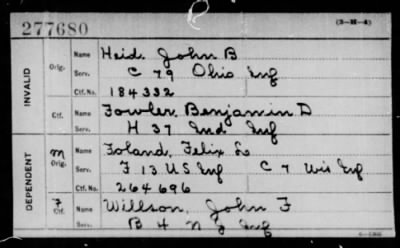 277680 (3-M-4)
INVALID
Orig. Name Heid, John B
Serv. C 79 Ohio Inf
Ctf. No. 184332
Ctf. Name Fowler, Benjamin D
Serv. H 37 Ind Inf
DEPENDENT
M Orig. Name Foland, Felix L
Serv. F 13 US Inf C 7 Wis Inf
Ctf. No. 264696
F Ctf. Name Willson, John F
Serv. B 4 N J Inf